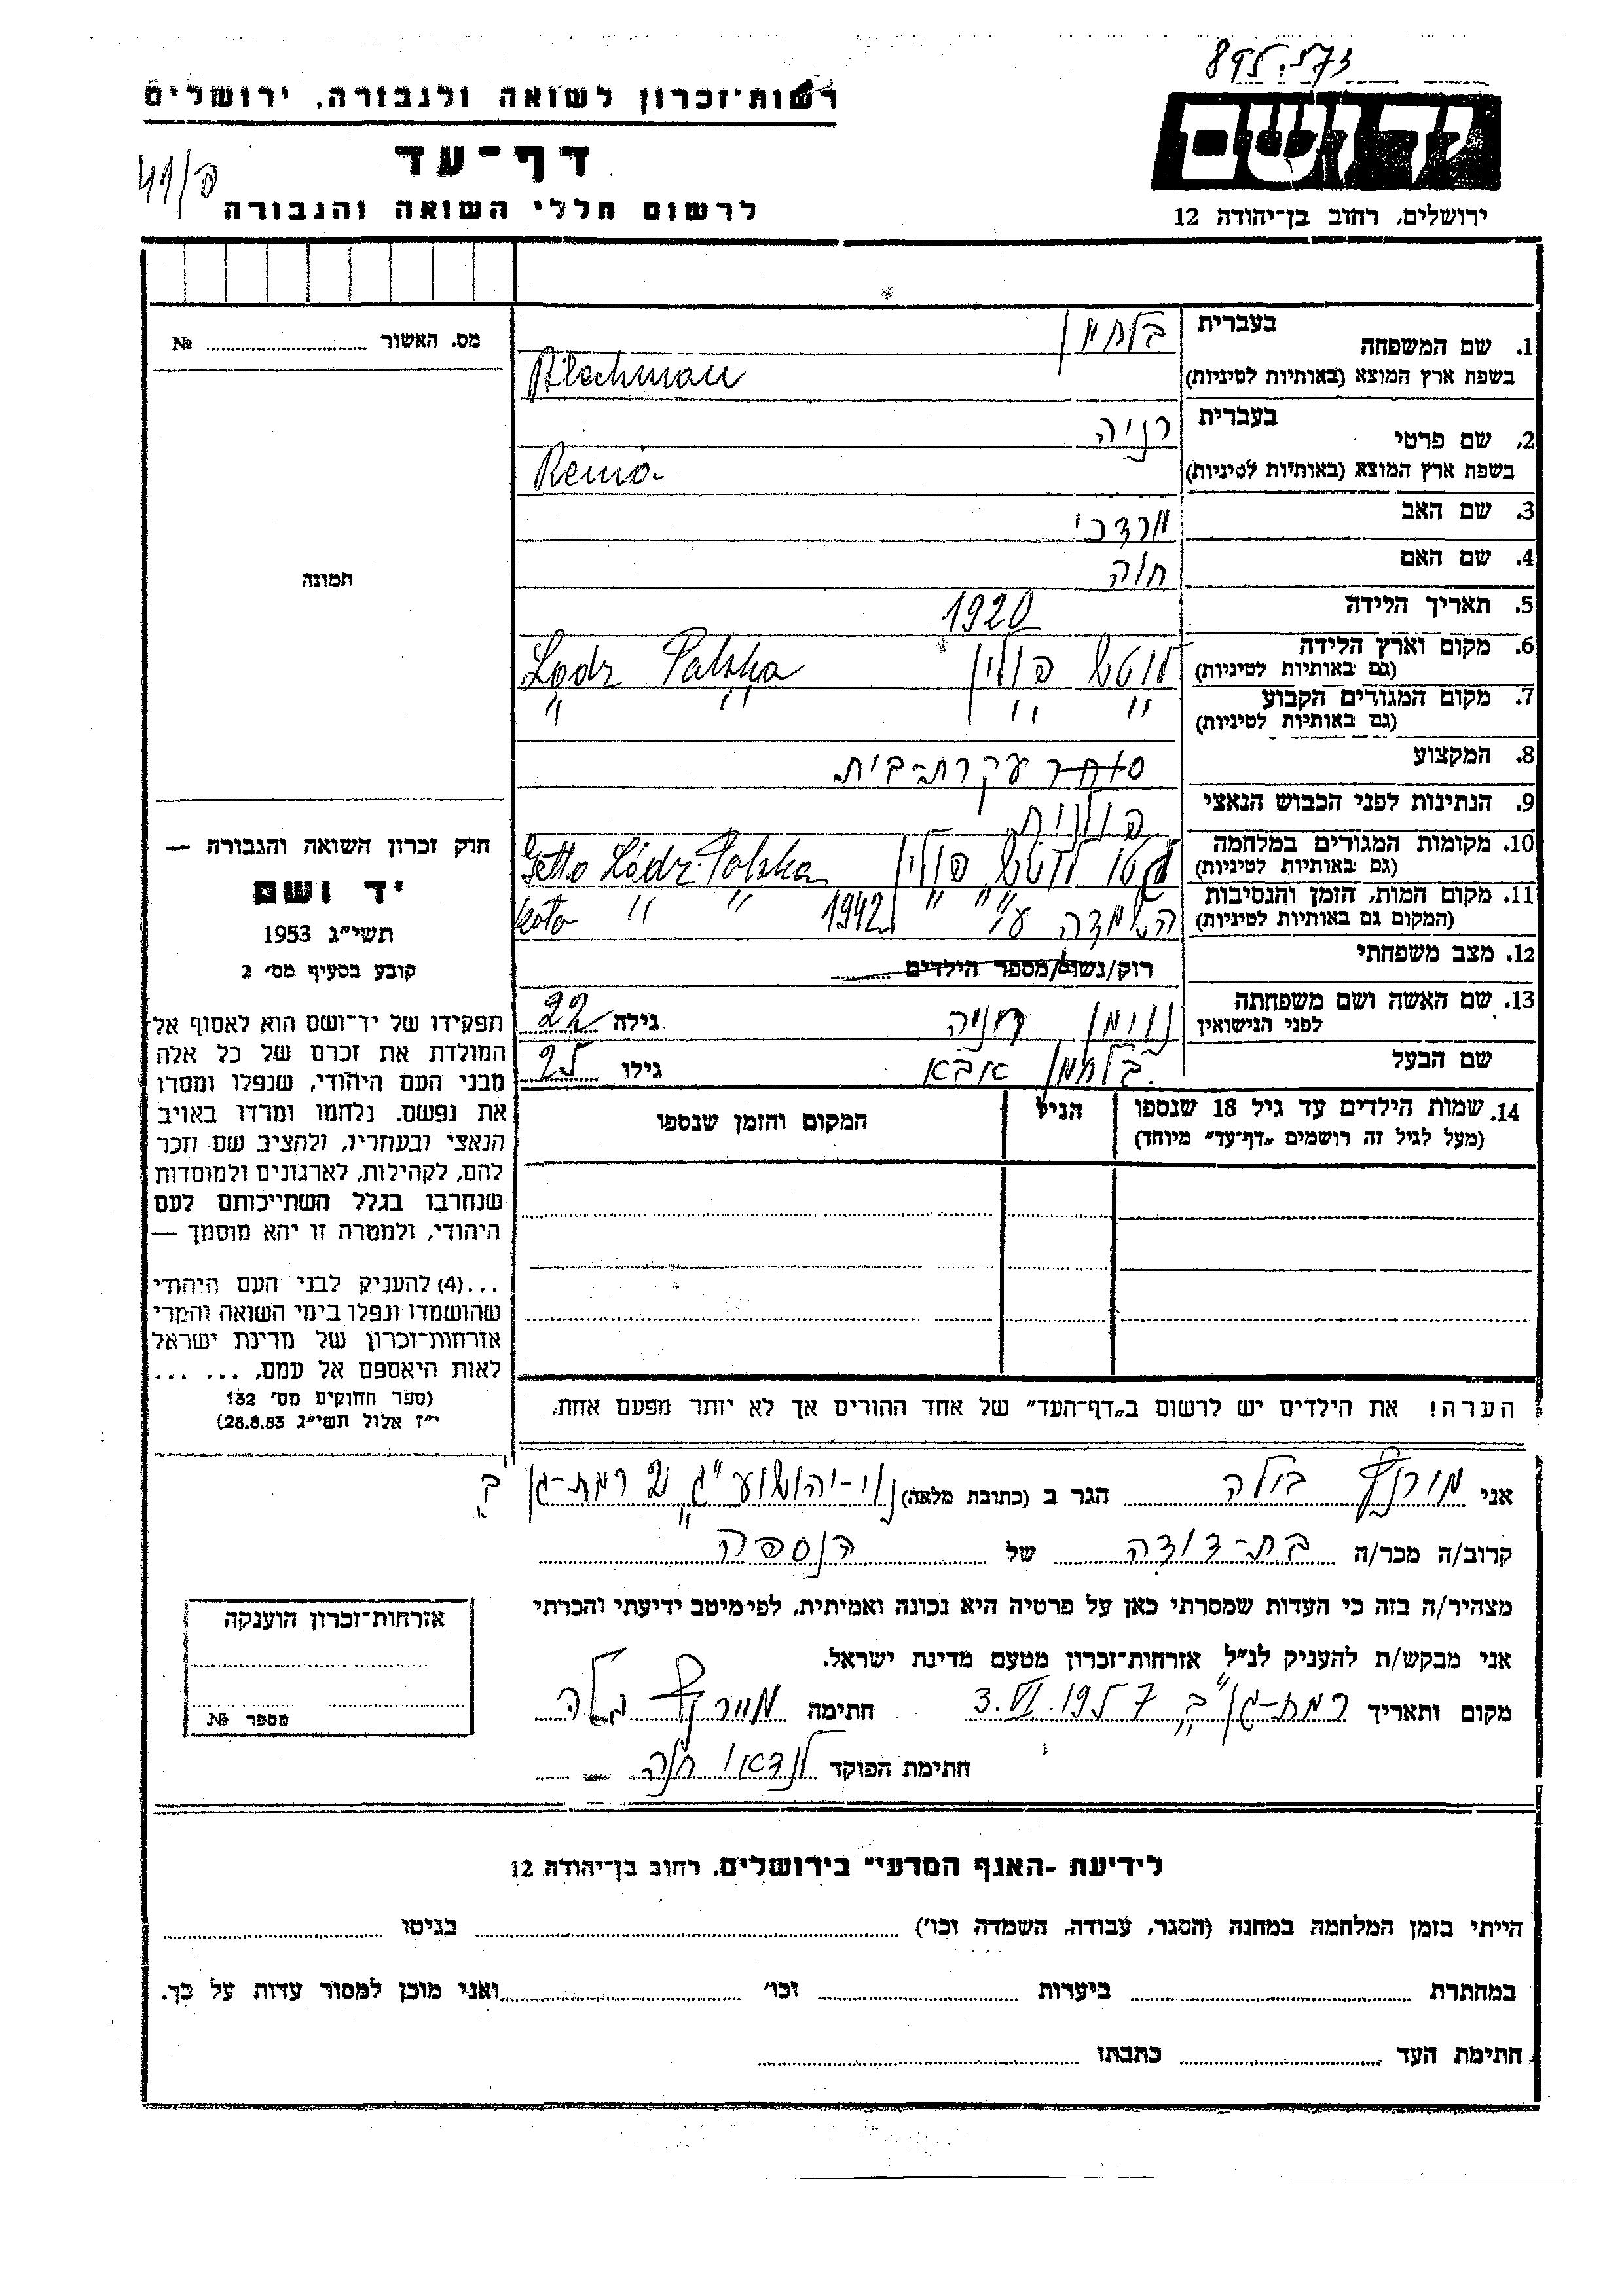 895.573
רשות־זכרון לשואה ולגבורה, ירושלים
דף־עד
לרשום חללי השואה והגבורה
ידושם
ירושלים, רחוב בן־יהודה 12
מס. האשור ........ №
1. שם המשפחה בעברית בלחמן
בשפת ארץ המוצא (באותיות לטיניות) Blechman
2. שם פרטי בעברית רניה
בשפת ארץ המוצא (באותיות לטיניות) Renia
3. שם האב מרדכי
4. שם האם חוה
5. תאריך הלידה 1920
6. מקום וארץ הלידה (גם באותיות לטיניות) לודז' פולין Lodz Polska
7. מקום המגורים הקבוע (גם באותיות לטיניות) " " " "
8. המקצוע סוחר עקרת-בית
9. הנתינות לפני הכבוש הנאצי פולנית
10. מקומות המגורים במלחמה (גם באותיות לטיניות) גטו פולין Getto Lódz Polska
11. מקום המות, הזמן והנסיבות (המקום גם באותיות לטיניות) השמדה ע"י " " 1942 " " koło
12. מצב משפחתי רוק/נשוי/מספר הילדים ........
13. שם האשה ושם משפחתה לפני הנישואין נוימן רניה גילה 22
שם הבעל בלחמן אבא גילו 25
14. שמות הילדים עד גיל 18 שנספו (מעל לגיל זה רושמים „דף־עד” מיוחד) הגיל המקום והזמן שנספו
תמונה
חוק זכרון השואה והגבורה —
יד ושם
תשי״ג 1953
קובע בסעיף מס׳ 2
תפקידו של יד־ושם הוא לאסוף אל
המולדת את זכרם של כל אלה
מבני העם היהודי, שנפלו ומסרו
את נפשם, נלחמו ומרדו באויב
הנאצי ובעוזריו, ולהציב שם וזכר
להם, לקהילות, לארגונים ולמוסדות
שנחרבו בגלל השתייכותם לעם
היהודי, ולמטרה זו יהא מוסמך —
...(4) להעניק לבני העם היהודי
שהושמדו ונפלו בימי השואה והמרי
אזרחות־זכרון של מדינת ישראל
לאות היאספם אל עמם, ... ...
(ספר החוקים מס׳ 132
י״ז אלול תשי״ג 28.8.53)
הערה! את הילדים יש לרשום ב„דף־העד” של אחד ההורים אך לא יותר מפעם אחת.
אני בלה הגר ב (כתובת מלאה) נוי-יהושוע רמת-גן ב'
קרוב/ה מכר/ה בת-דודה של הנספה
מצהיר/ה בזה כי העדות שמסרתי כאן על פרטיה היא נכונה ואמיתית, לפי מיטב ידיעתי והכרתי
אני מבקש/ת להעניק לנ״ל אזרחות־זכרון מטעם מדינת ישראל.
מקום ותאריך רמת-גן "ב" 3.VI.1957 חתימה בלה
חתימת הפוקד לנדאו חנה
אזרחות־זכרון הוענקה
מספר №
לידיעת „האגף המדעי” בירושלים, רחוב בן־יהודה 12
הייתי בזמן המלחמה במחנה (הסגר, עבודה, השמדה וכו׳) ........ בגיטו ........
במחתרת ........ ביערות ........ וכו׳ ........ ואני מוכן למסור עדות על כך.
חתימת העד ........ כתבתו ........